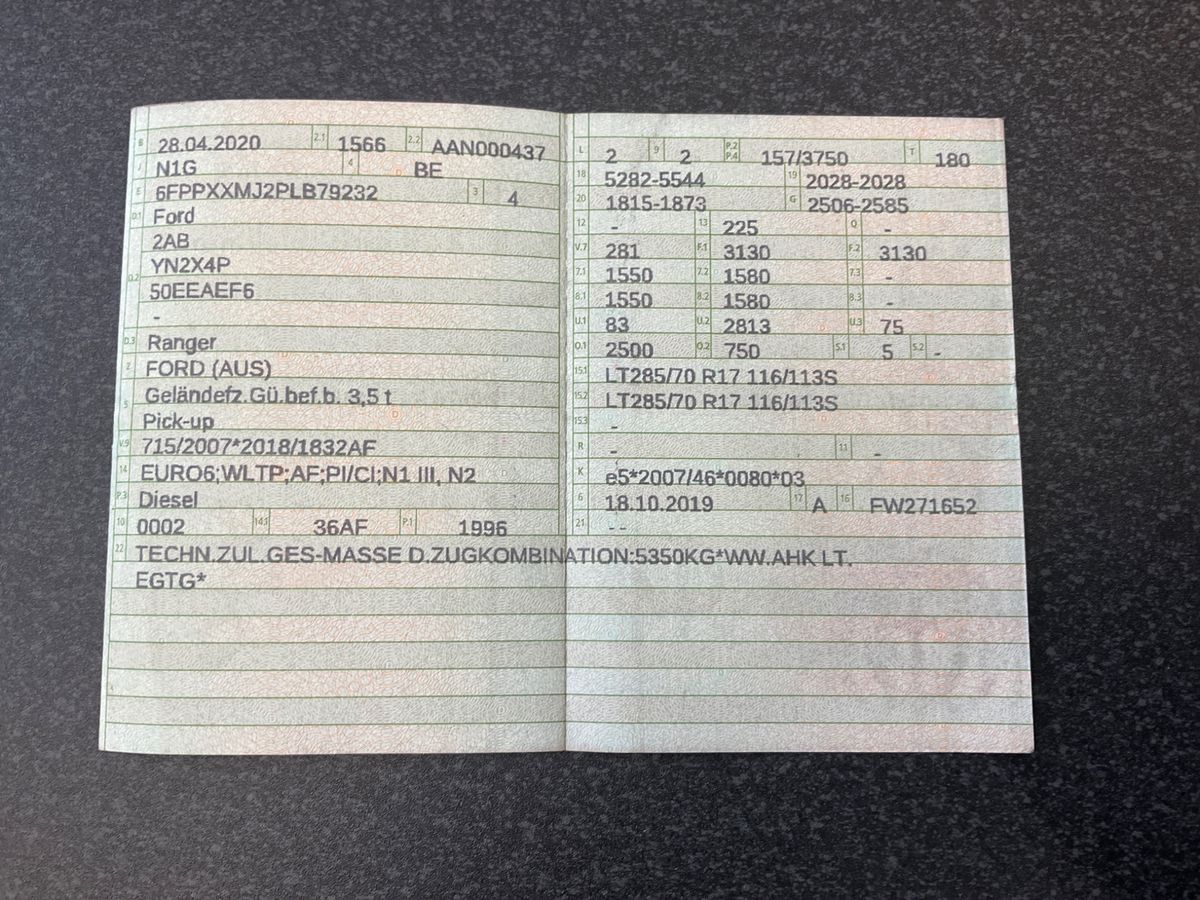 B 28.04.2020 2.1 1566 2.2 AAN000437
J N1G 4 BE
E 6FPPXXMJ2PLB79232 3 4
D.1 Ford
2AB
D.2 YN2X4P
50EEAEF6
-
D.3 Ranger
2 FORD (AUS)
5 Geländefz.Gü.bef.b. 3,5 t
Pick-up
V.9 715/2007*2018/1832AF
14 EURO6;WLTP;AF;PI/CI;N1 III, N2
P.3 Diesel
10 0002 14.1 36AF P.1 1996
L 2 9 2 P.2 P.4 157/3750 T 180
18 5282-5544 19 2028-2028
20 1815-1873 G 2506-2585
12 - 13 225 Q -
V.7 281 F.1 3130 F.2 3130
7.1 1550 7.2 1580 7.3 -
8.1 1550 8.2 1580 8.3 -
U.1 83 U.2 2813 U.3 75
O.1 2500 O.2 750 S.1 5 S.2 -
15.1 LT285/70 R17 116/113S
15.2 LT285/70 R17 116/113S
15.3 -
R - 11 -
K e5*2007/46*0080*03
6 18.10.2019 17 A 16 FW271652
21 --
22 TECHN.ZUL.GES-MASSE D.ZUGKOMBINATION:5350KG*WW.AHK LT.
EGTG*